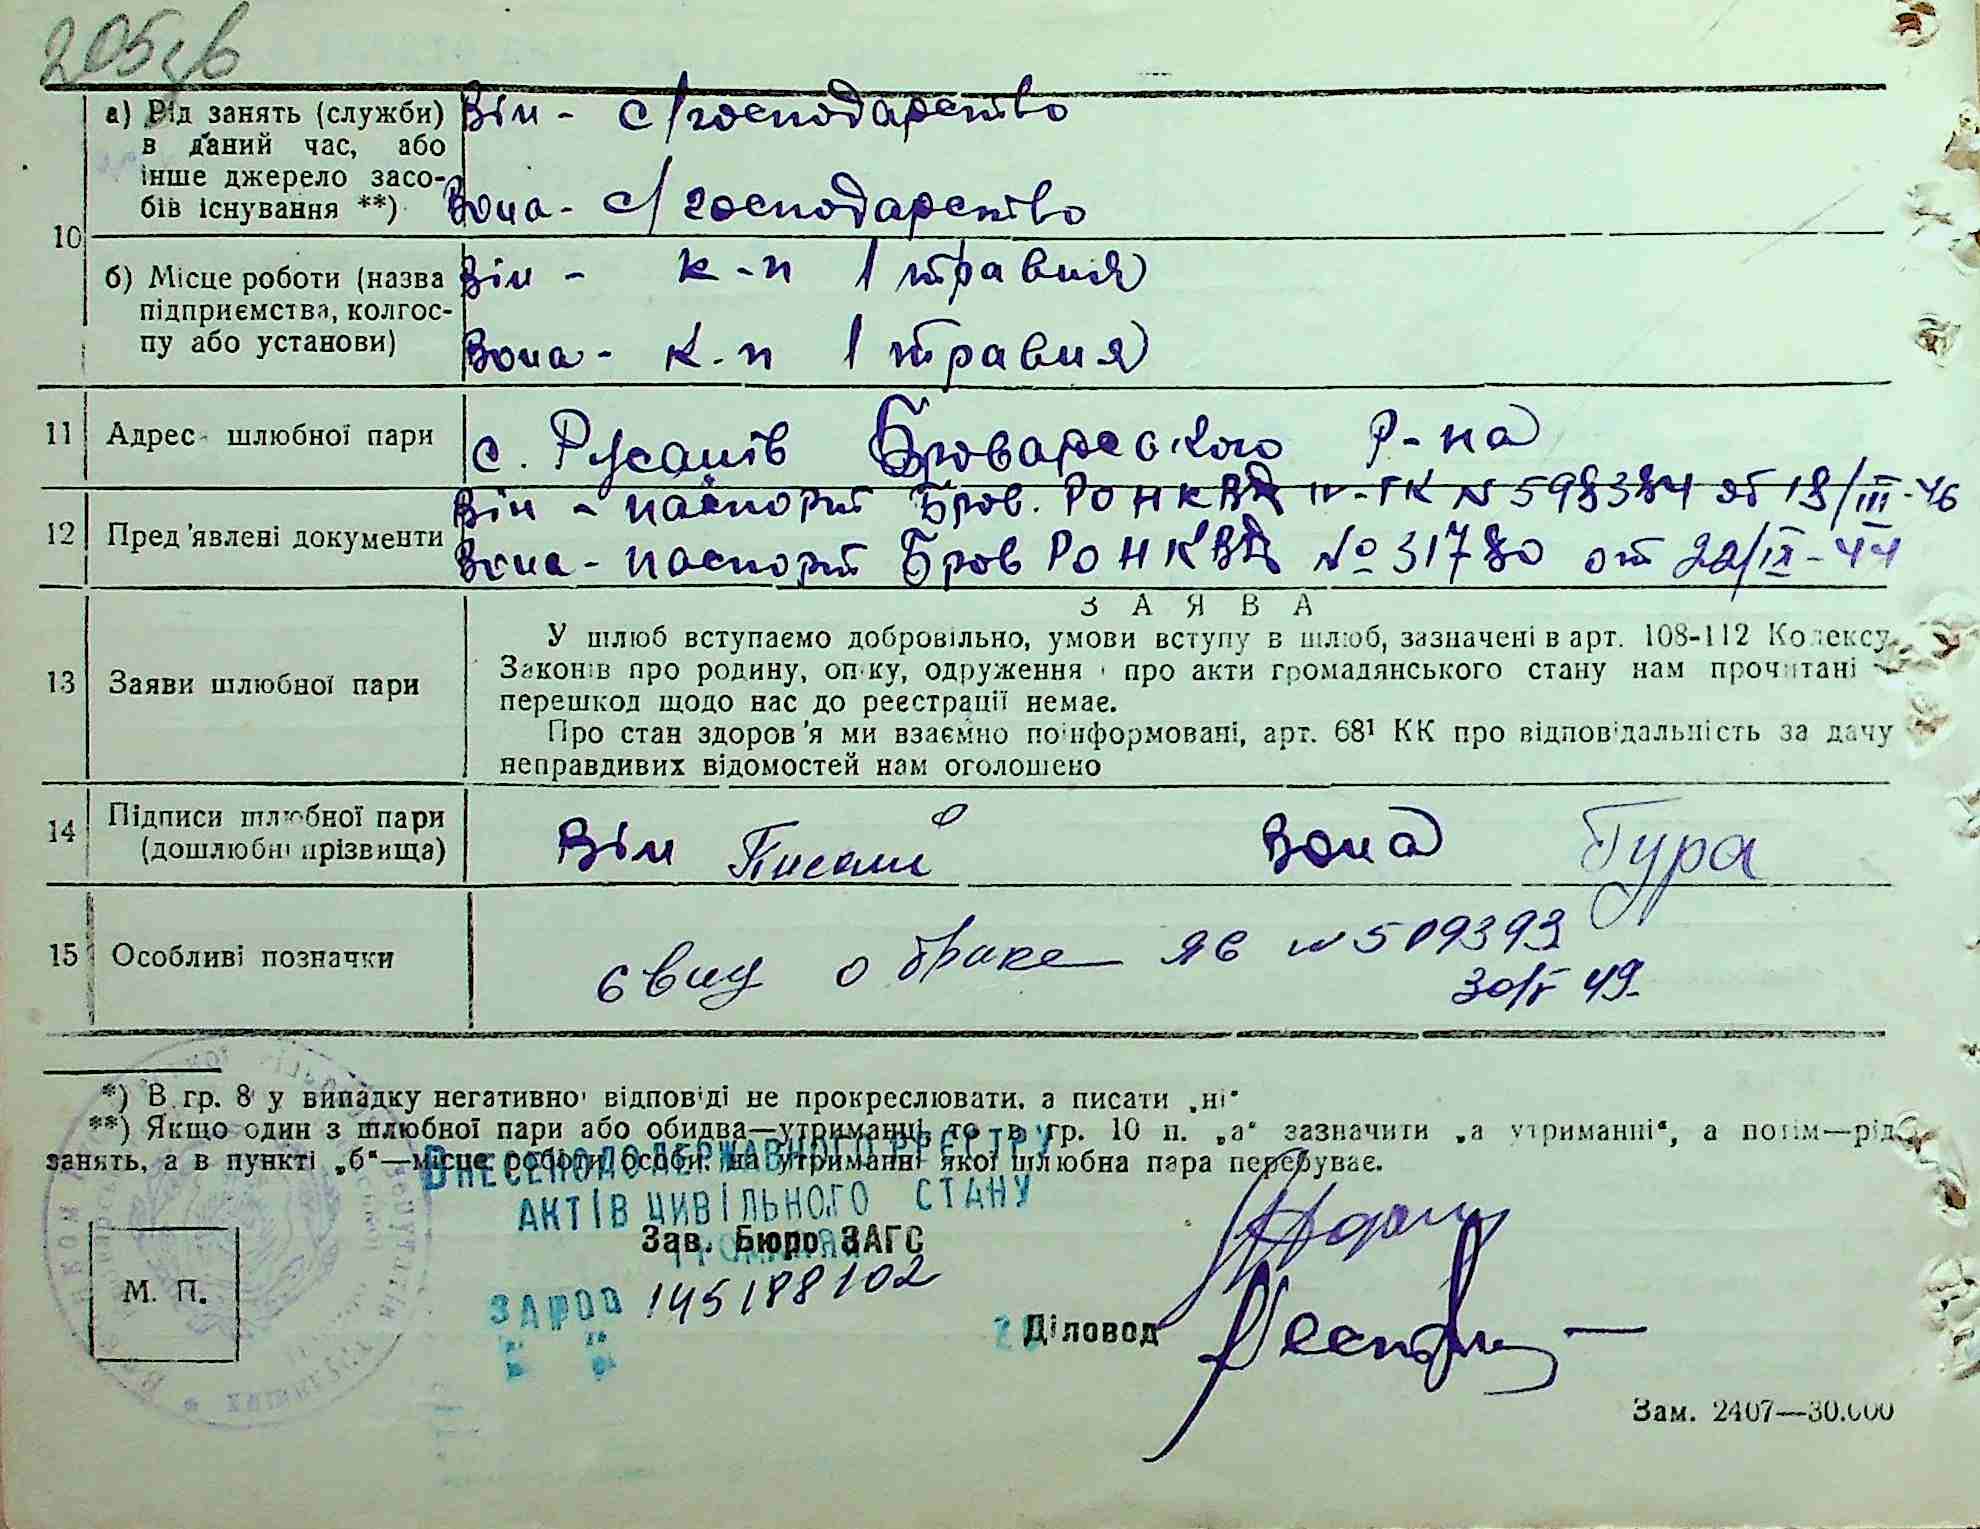 205
а) Рід занять (служби) в даний час, або інше джерело засобів існування **)
Він - с/господарство
Вона - с/господарство
10
б) Місце роботи (назва підприємства, колгоспу або установи)
Він - к-п 1 травня
Вона - к-п 1 травня
11 Адрес шлюбної пари
с. Русанів Броварського р-на
12 Пред'явлені документи
Він - паспорт Бров. РО НКВД IV-ГК № 598384 от 18/III-46
Вона - паспорт Бров РО НКВД № 31780 от 22/IX-44
ЗАЯВА
13 Заяви шлюбної пари
У шлюб вступаємо добровільно, умови вступу в шлюб, зазначені в арт. 108-112 Кодексу
Законів про родину, опіку, одруження і про акти громадянського стану нам прочитані
перешкод щодо нас до реєстрації немає.
Про стан здоров'я ми взаємно поінформовані, арт. 68¹ КК про відповідальність за дачу
неправдивих відомостей нам оголошено
14 Підписи шлюбної пари (дошлюбні прізвища)
Він Вона Гура
15 Особливі позначки
свид о браке ЯБ № 509393
30/V 49.
*) В гр. 8 у випадку негативної відповіді не прокреслювати, а писати „ні“
**) Якщо один з шлюбної пари або обидва—утриманці, то в гр. 10 п. „а“ зазначити „а утриманні“, а потім—рід
занять, а в пункті „б“—місце роботи особи, на утриманні якої шлюбна пара перебуває.
ВНЕСЕНО ДО ДЕРЖАВНОГО РЕЄСТРУ
АКТІВ ЦИВІЛЬНОГО СТАНУ
ГРОМАДЯН
Зав. Бюро ЗАГС
ЗА № 00 145188102
М. П.
Діловод
Зам. 2407—30.000